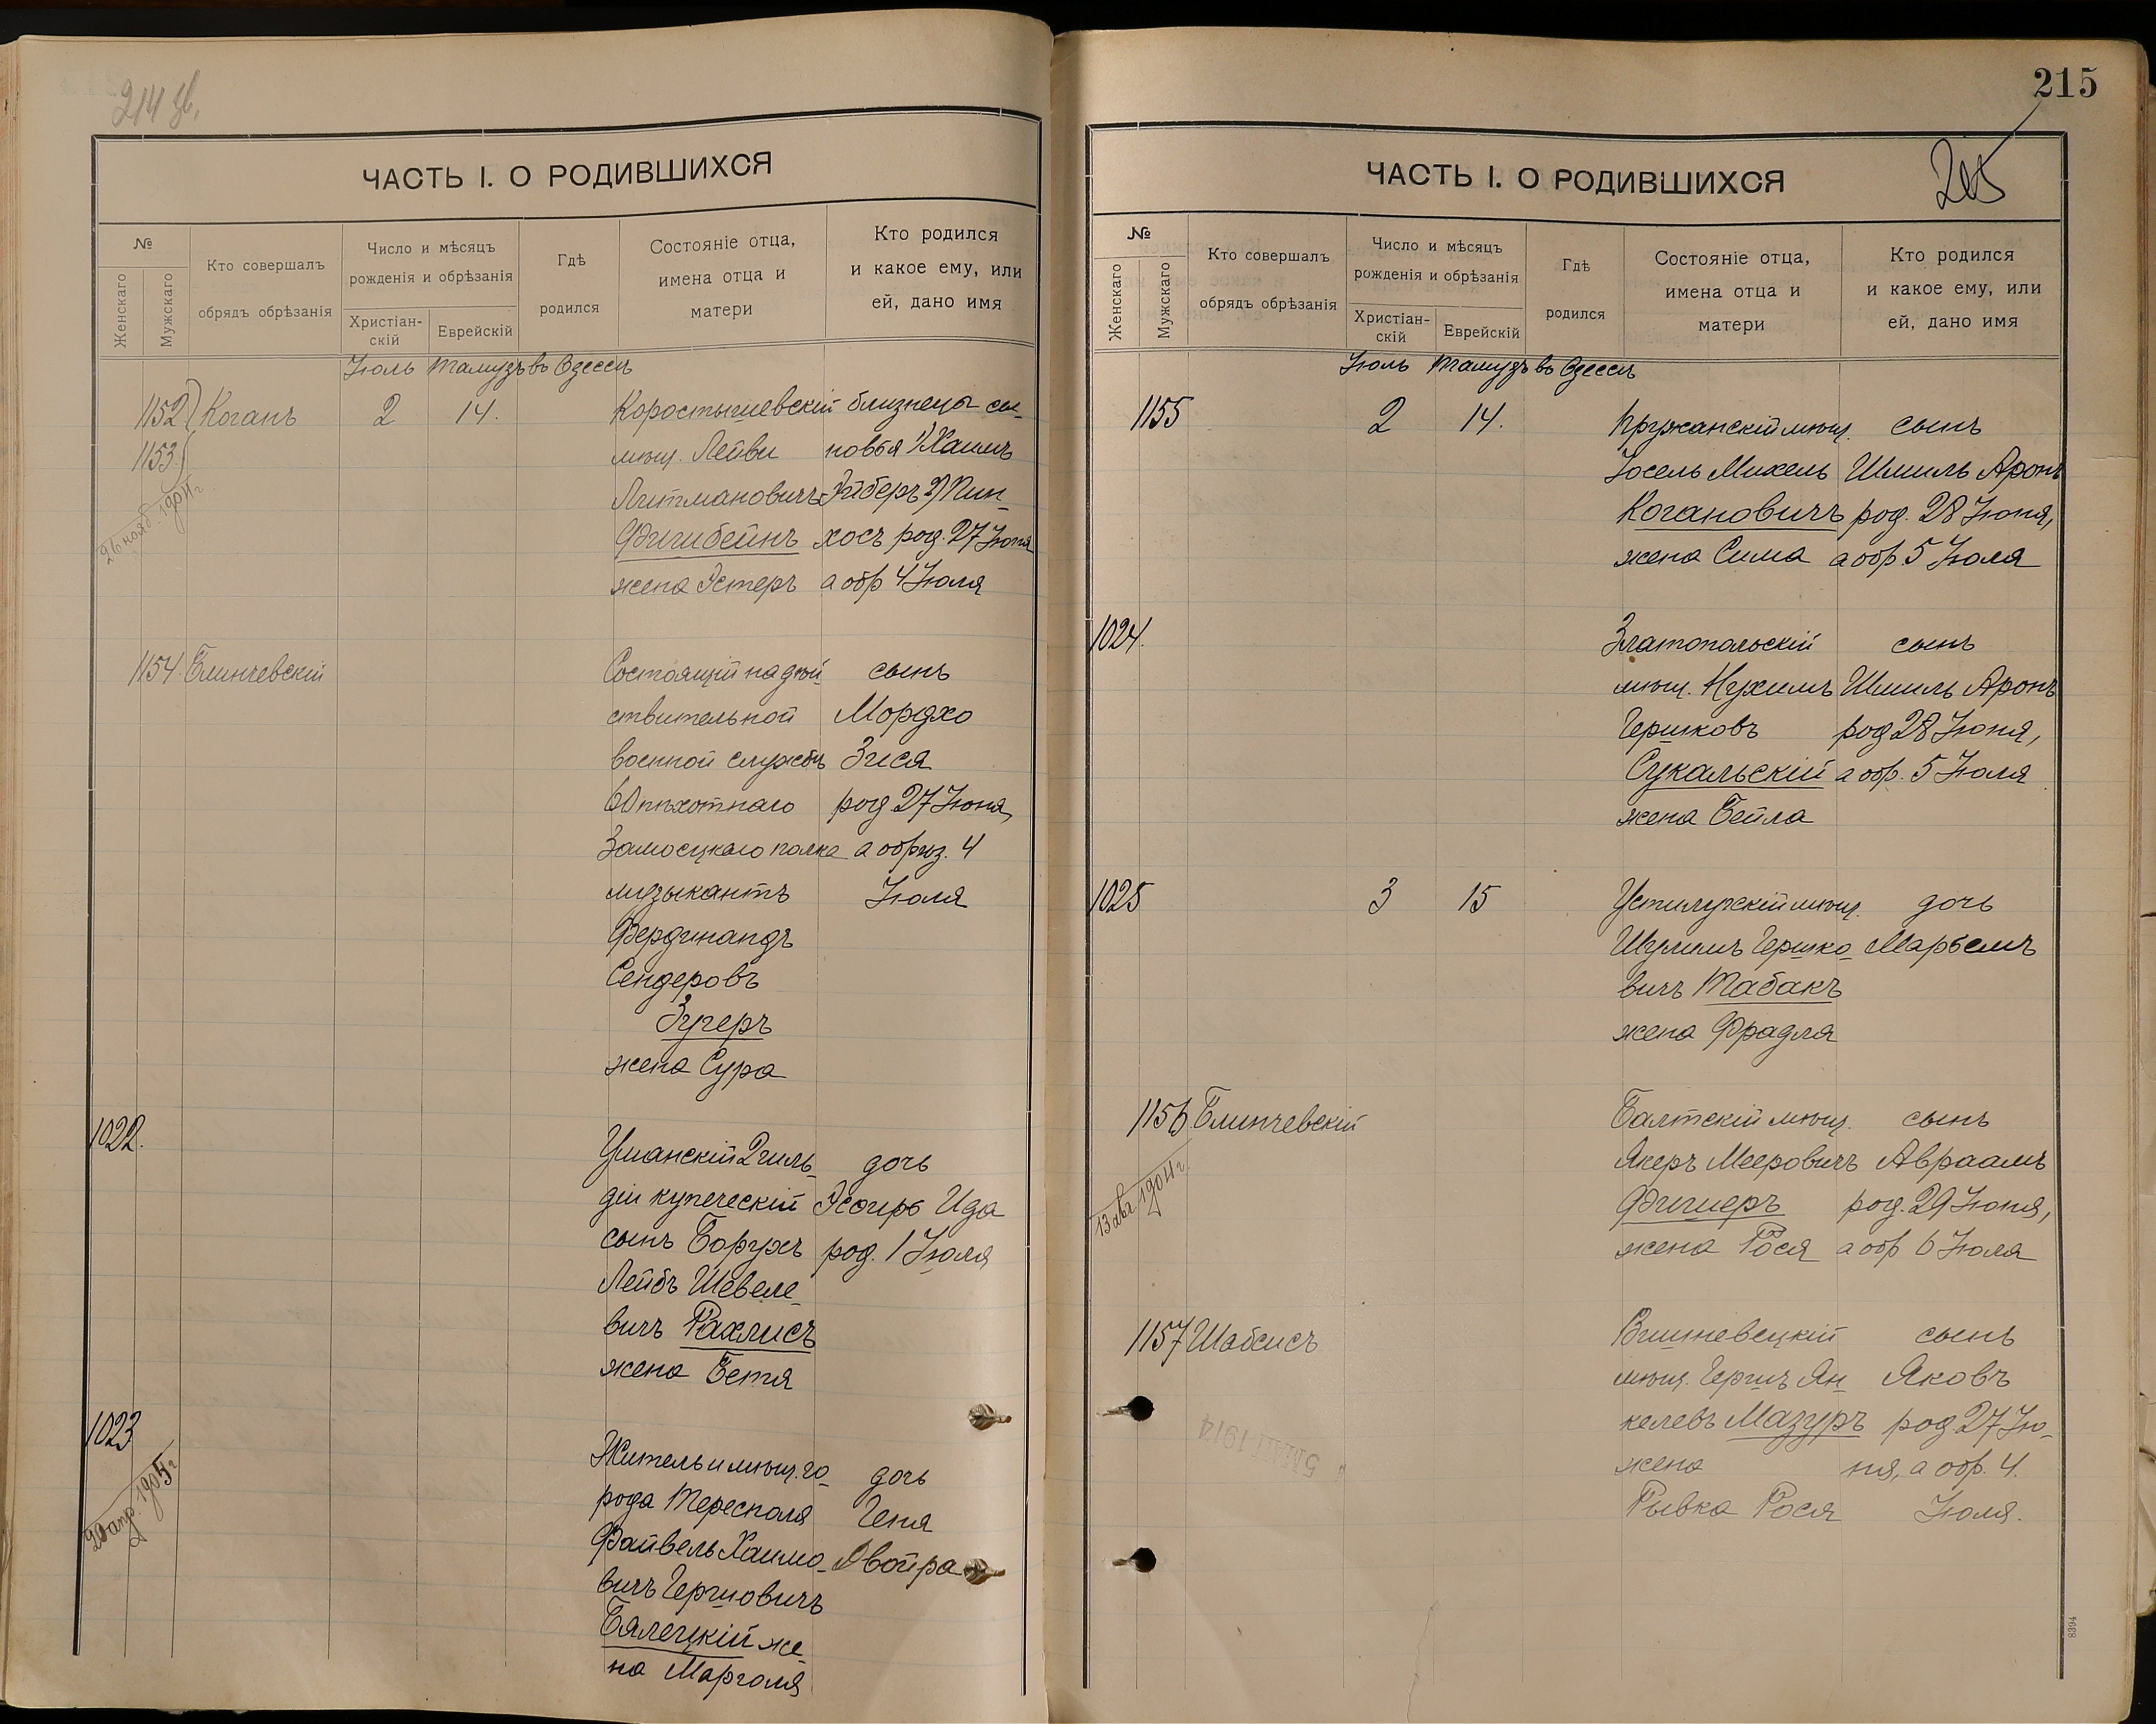 214 зв.
ЧАСТЬ I. О РОДИВШИХСЯ
№
Женскаго
Мужскаго
Кто совершалъ
обрядъ обрѣзанія
Число и мѣсяцъ
рожденія и обрѣзанія
Христіан-
скій
Еврейскій
Гдѣ
родился
Состояніе отца,
имена отца и
матери
Кто родился
и какое ему, или
ей, дано имя
Іюль Тамузъ въ Одессѣ
1152 Коганъ 2 14. Коростышевскій близнецы сы-
1153 мѣщ. Лейви новья 1) Хаимъ
26 нояб. 1904 г.
Литмановичъ Эйберъ 2) Пин-
Фишбейнъ хосъ род. 27 Іюня
жена Эстеръ а обр 4 Іюля
1154 Блинчевскій Состоящій на дѣй- сынъ
ствительной Мордхо
военной службѣ Зися
60 пѣхотнаго род 27 Іюня,
Замосцкаго полка а обрѣз. 4
музыкантъ Іюля
Фердинандъ
Сендеровъ
Зугеръ
жена Сура
1022. Уманскій 2 гиль- дочь
діи купеческій Эсѳирь Ида
сынъ Борухъ род. 1 Іюля
Лейбъ Шевеле-
вичъ Рахлисъ
жена Бетя
1023 Житель и мѣщ. го- дочь
20 апр. 1905 г
рода Тересполя Геня
Файвель Хаимо- Двойра
вичъ Гершовичъ
Бялецкій же-
на Марголя
215
205
ЧАСТЬ I. О РОДИВШИХСЯ
№
Женскаго
Мужскаго
Кто совершалъ
обрядъ обрѣзанія
Число и мѣсяцъ
рожденія и обрѣзанія
Христіан-
скій
Еврейскій
Гдѣ
родился
Состояніе отца,
имена отца и
матери
Кто родился
и какое ему, или
ей, дано имя
Іюль Тамузъ въ Одессѣ
1155 2 14. Пружанскій мѣщ. сынъ
Іосель Михель Шмиль Аронъ
Когановичъ род. 28 Іюня,
жена Сима а обр. 5 Іюля
1024. Златопольскій сынъ
мѣщ. Нухимъ Шмиль Аронъ
Гершковъ род 28 Іюня,
Сукальскій а обр. 5 Іюля
жена Бейла
1025 3 15 Устилугскій мѣщ. дочь
Шулимъ Гершко- Марьемъ
вичъ Табакъ
жена Фрадля
1156 Блинчевскій Балтскій мѣщ. сынъ
13 авг. 1904 г.
Янеръ Мееровичъ Авраамъ
Фишеръ род. 29 Іюня,
жена Рося а обр 6 Іюля
1157 Шабсисъ Вишневецкій сынъ
мѣщ. Гершъ Ян- Яковъ
келевъ Мазуръ род 27 Ію-
жена ня, а обр. 4.
Рывка Рося Іюля.
5 МАЯ 1914
8394